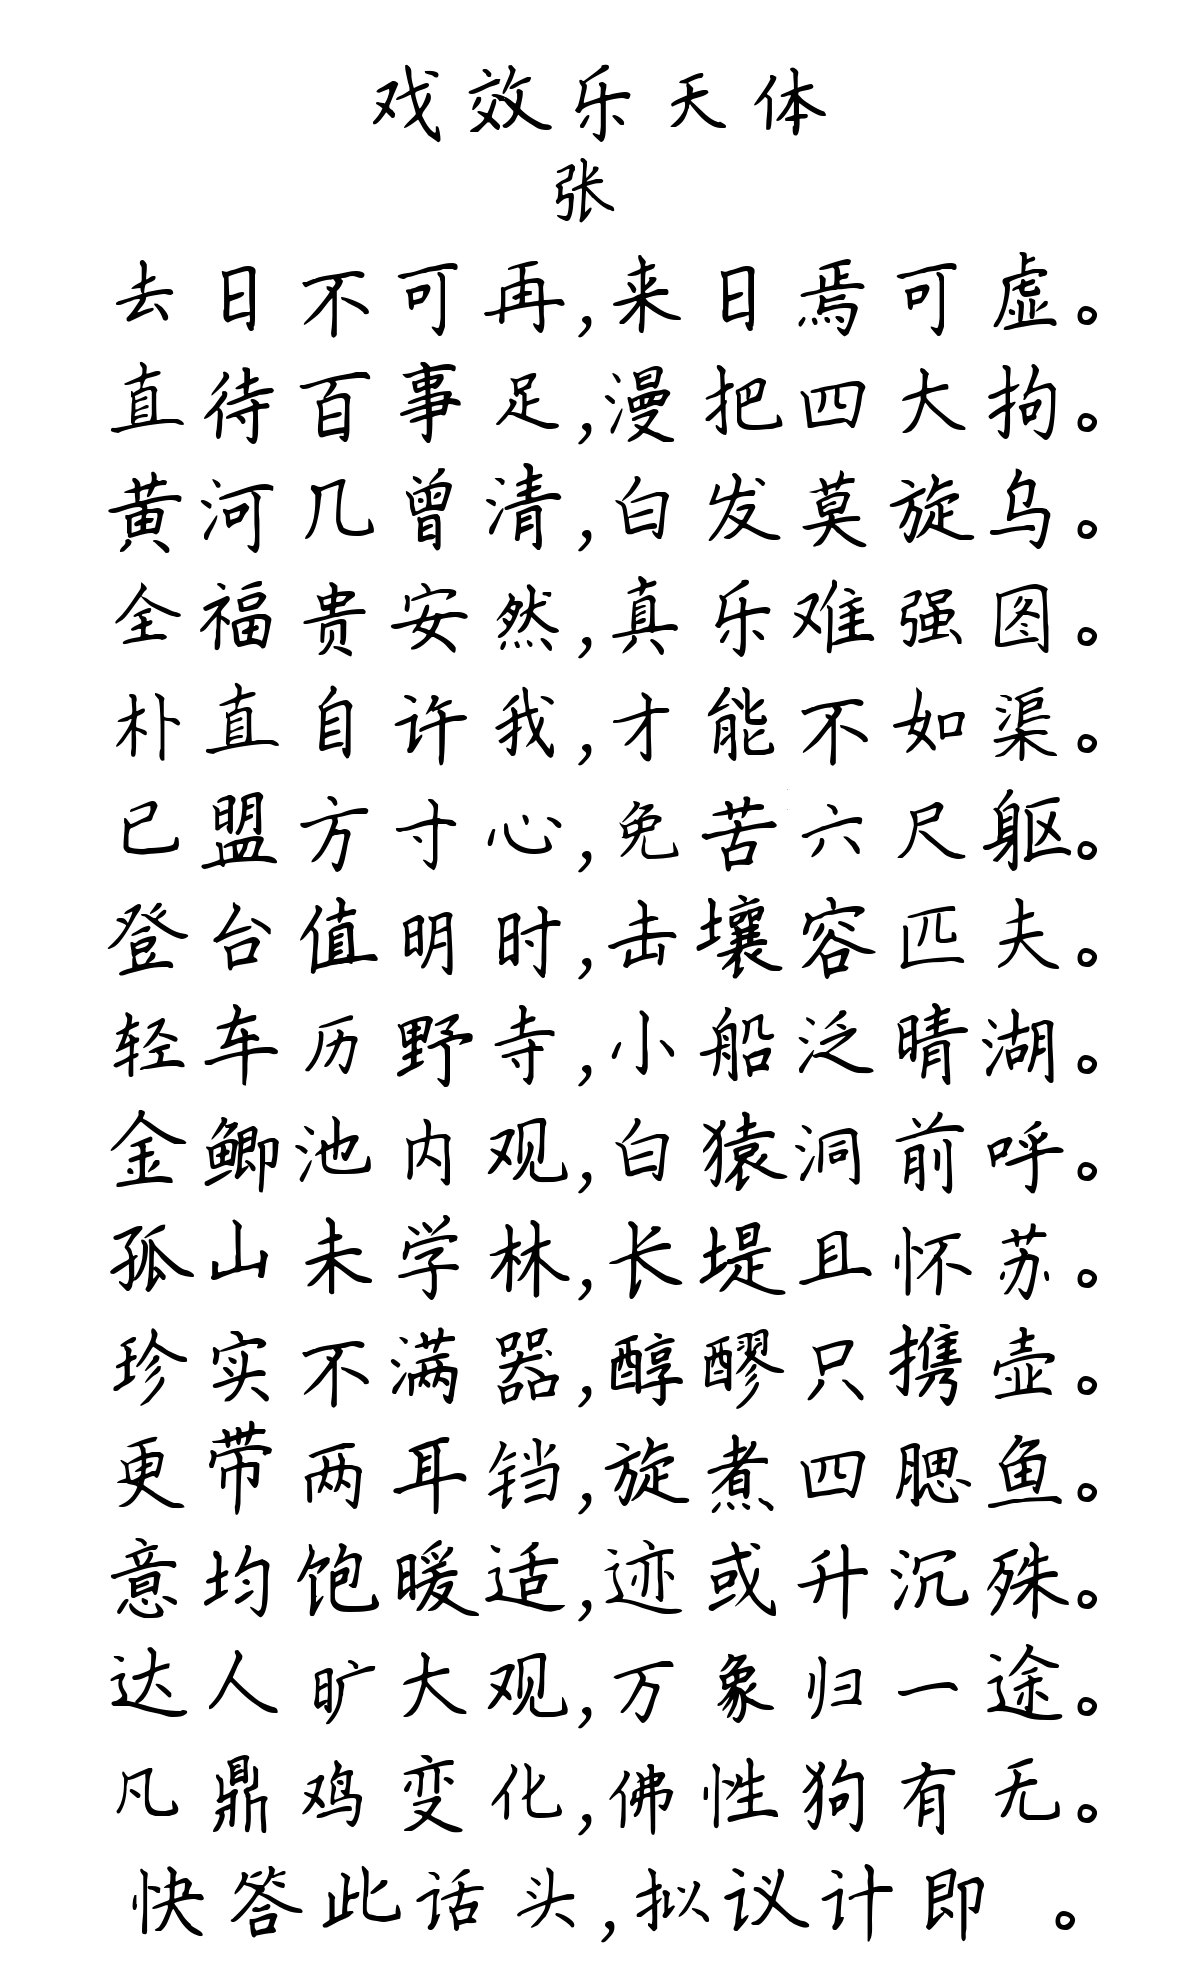 戏效乐天体
张
去日不可再,来日焉可虚。
直待百事足,漫把四大拘。
黄河几曾清,白发莫旋乌。
全福贵安然,真乐难强图。
朴直自许我,才能不如渠。
已盟方寸心,免苦六尺躯。
登台值明时,击壤容匹夫。
轻车历野寺,小船泛晴湖。
金鲫池内观,白猿洞前呼。
孤山未学林,长堤且怀苏。
珍实不满器,醇醪只携壶。
更带两耳铛,旋煮四腮鱼。
意均饱暖适,迹或升沉殊。
达人旷大观,万象归一途。
凡鼎鸡变化,佛性狗有无。
快答此话头,拟议计即 。